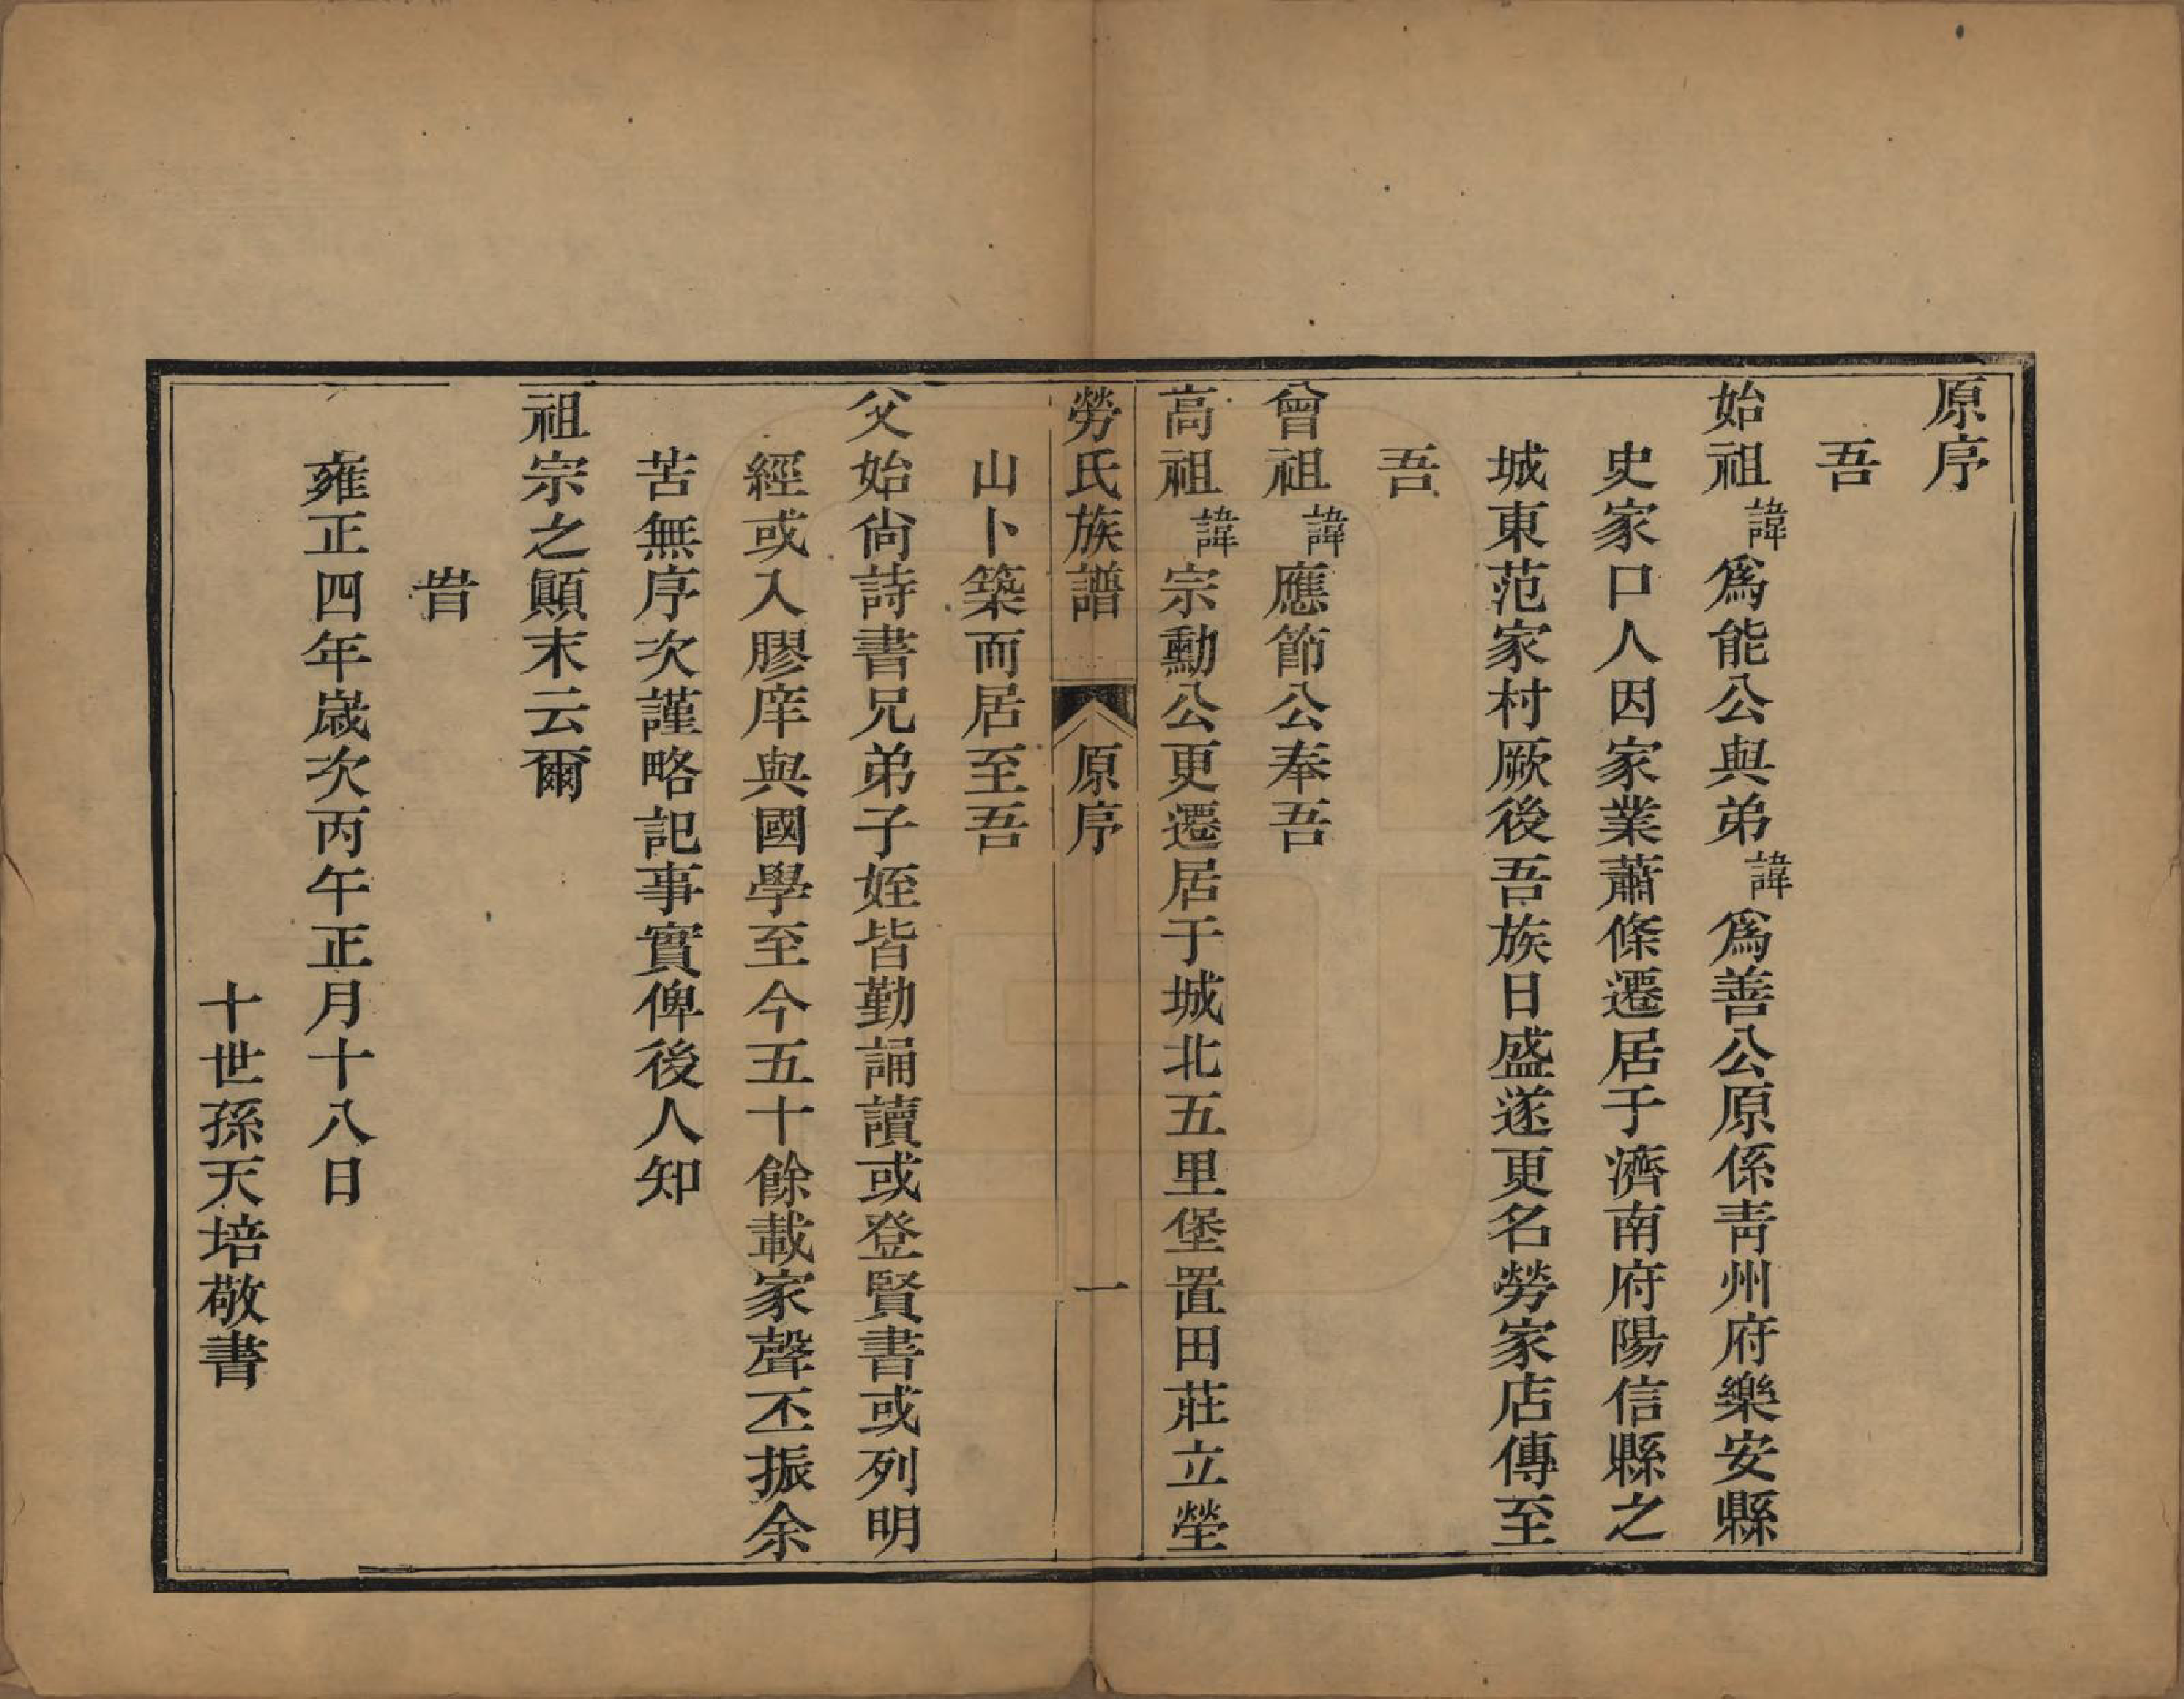 原序
吾
始祖諱爲能公與弟諱爲善公原係靑州府樂安縣
史家口人因家業蕭條遷居于濟南府陽信縣之
城東范家村厥後吾族日盛遂更名勞家店傳至
吾
曾祖諱應節公奉吾
高祖諱宗勳公更遷居于城北五里堡置田莊立塋
勞氏族譜 原序 一
山卜築而居至吾
父始尙詩書兄弟子姪皆勤誦讀或登賢書或列明
經或入膠庠與國學至今五十餘載家聲丕振余
苦無序次謹略記事實俾後人知
祖宗之顚末云爾
旹
雍正四年嵗次丙午正月十八日
十世孫天培敬書